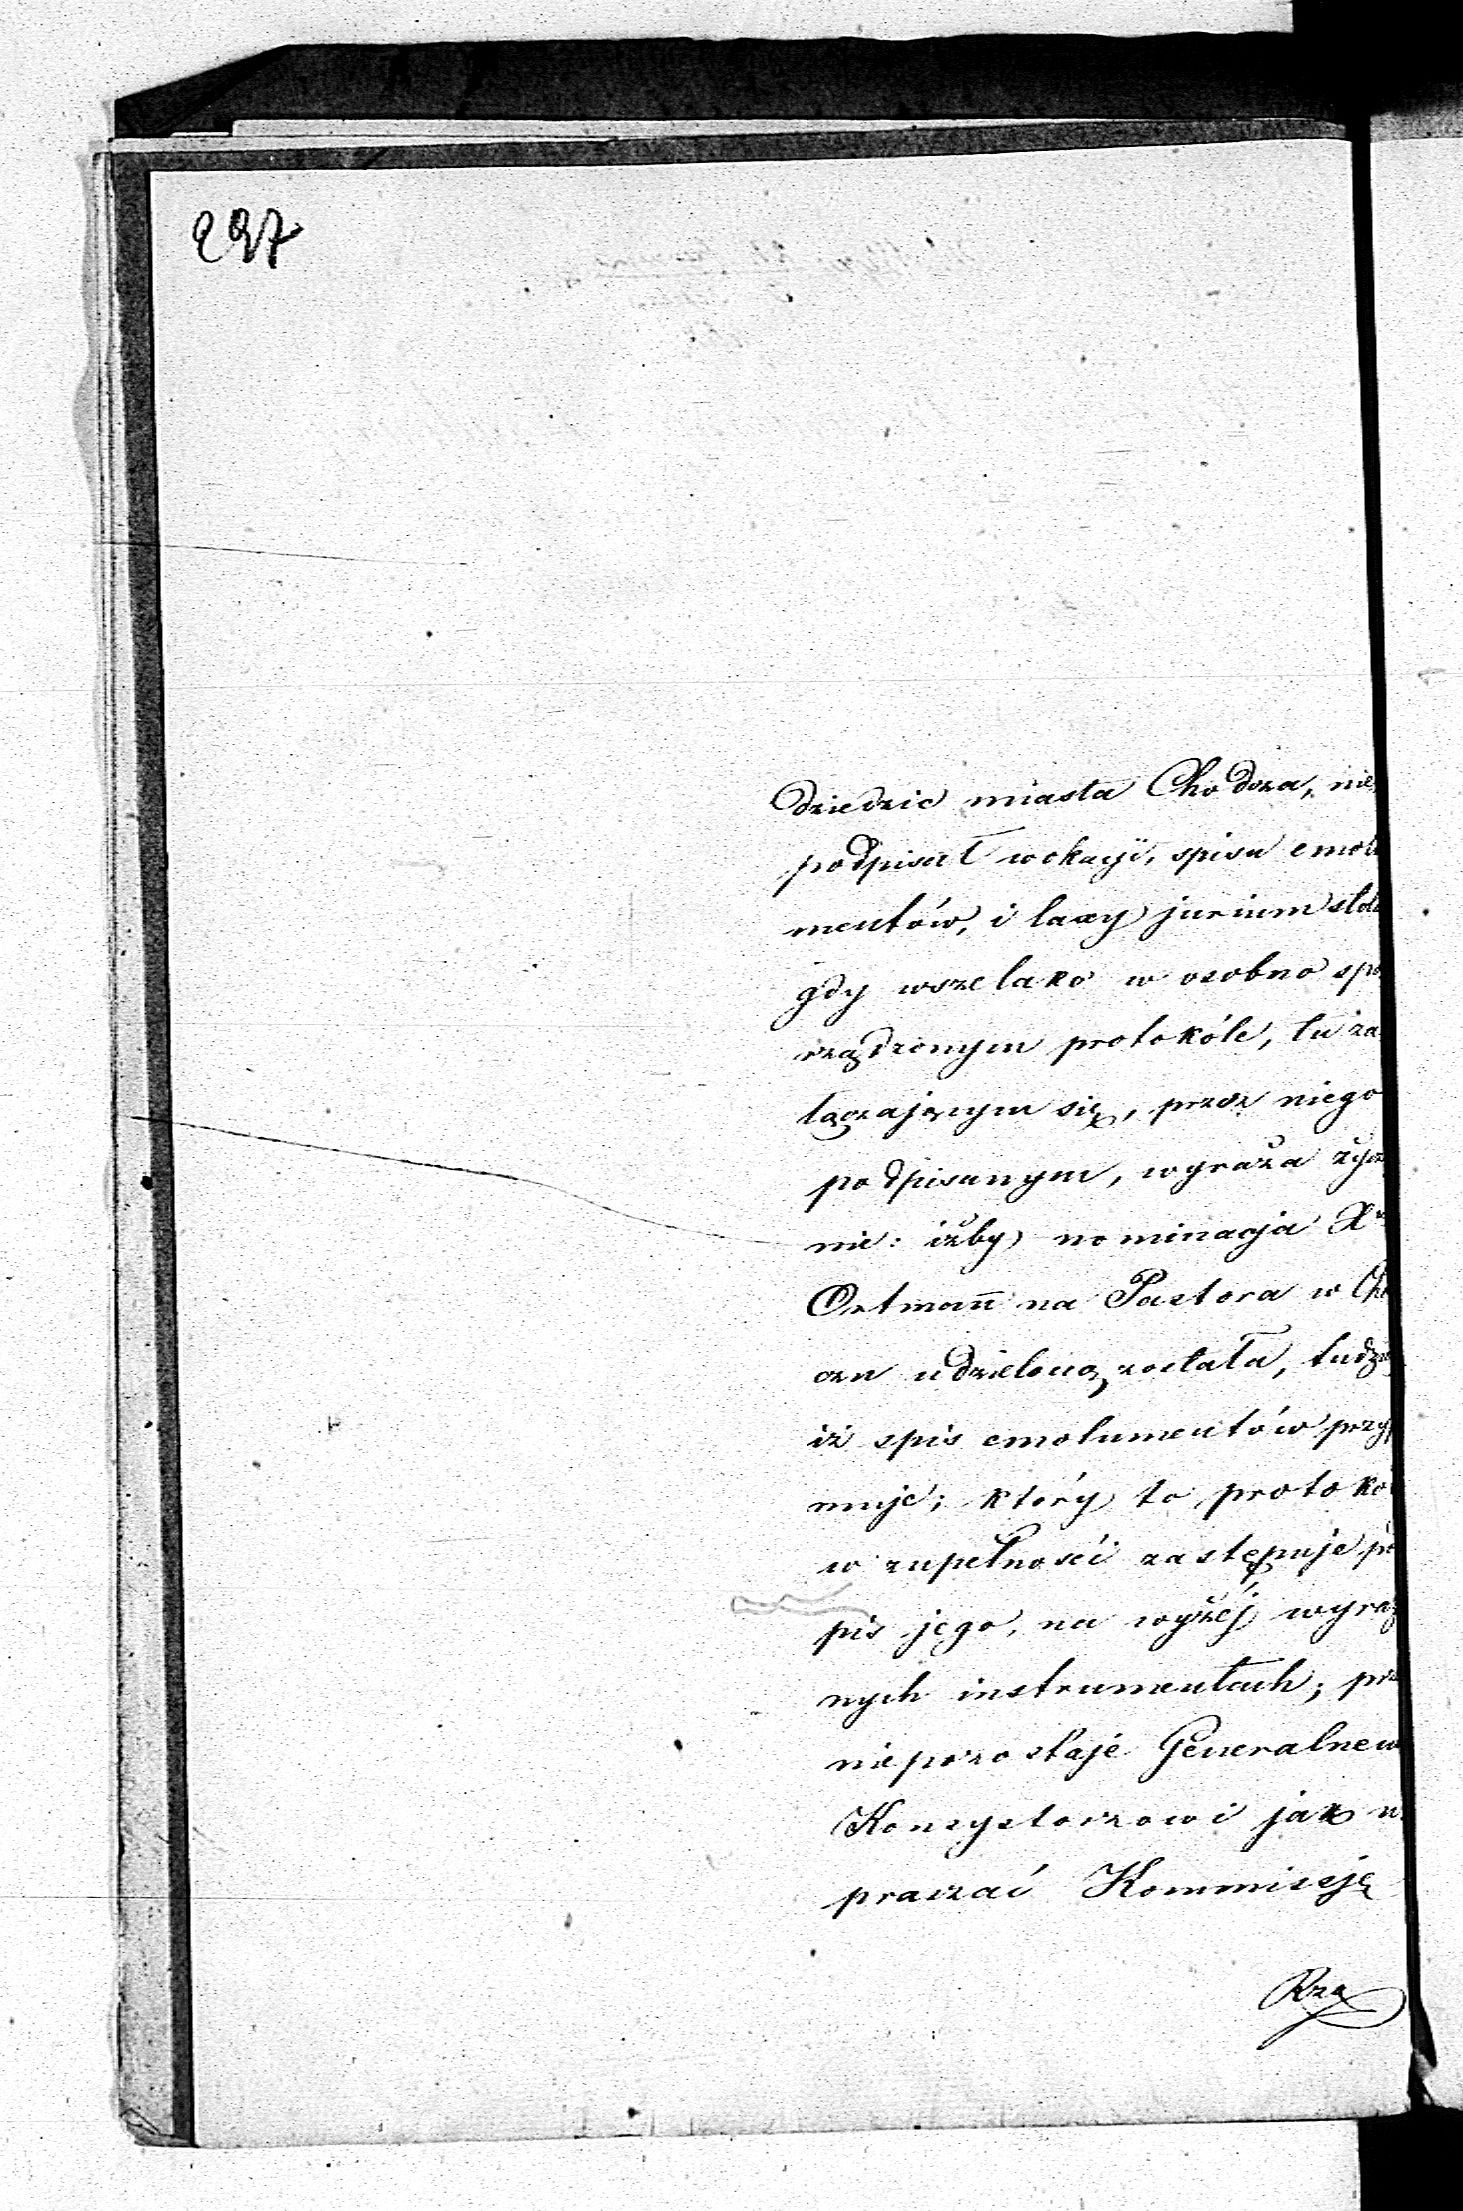 297
Dziedzic miasta Chodcza, nie
podpisał wokacji, spisu emolu
mentów, i taxy jurium stolæ
gdy wszelako w osobno spo
rządzonym protokóle, tu za
łączającym się, przez niego
podpisanym, wyraża życz
nie: iżby nominacja X
Ortmañ na Pastora w Cho
czu udzieloną została, tudzi
iż spis emolumentów przy
muje; który to protokó
w zupełności zastępuje pod
pis jego, na wyżéj wyra
nych instrumentach; prze
nie pozostaje Generalnem
Konsystorzowi jak u
praszać Kommisję
Rzą